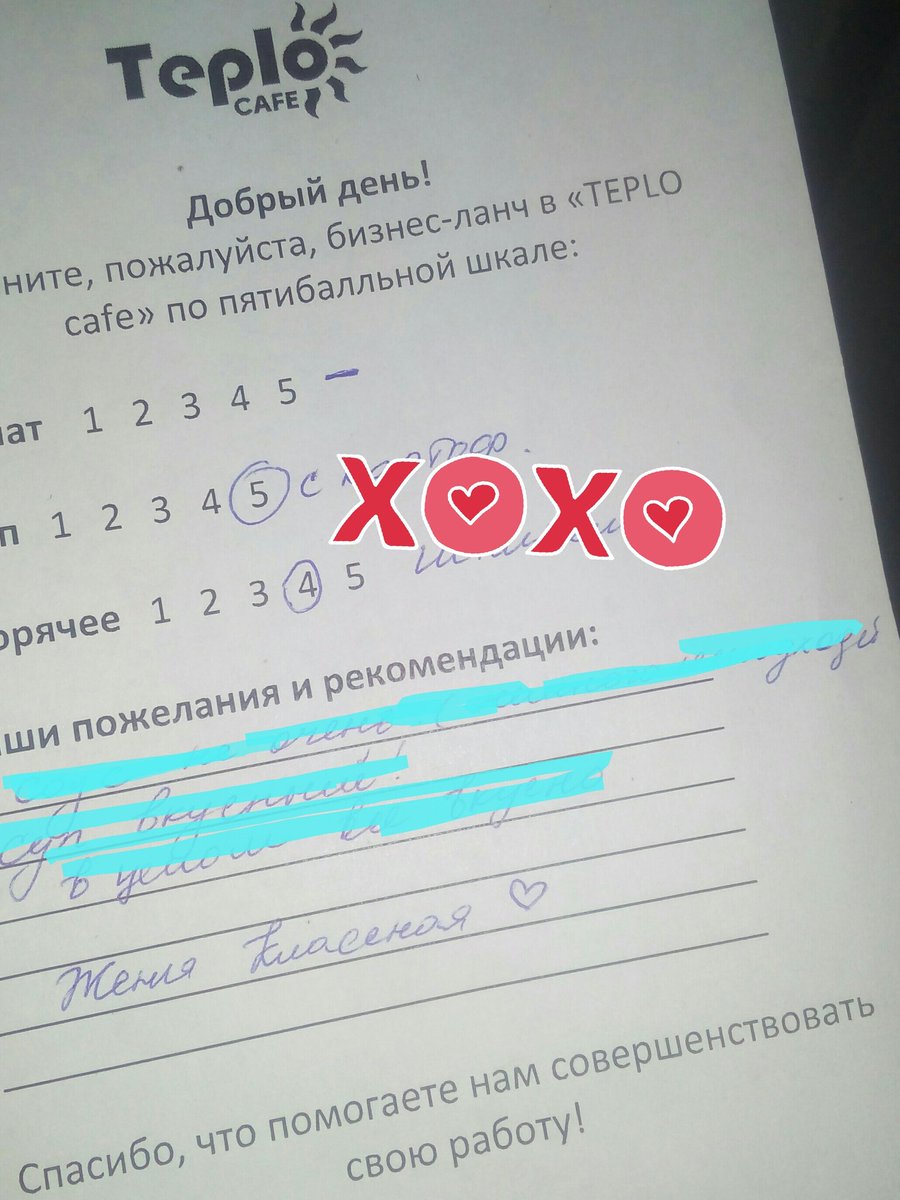 Teplo
CAFE
Добрый день!
ните, пожалуйста, бизнес-ланч в «TEPLO
cafe» по пятибалльной шкале:
лат 1 2 3 4 5 –
п 1 2 3 4 5 с
XOXO
орячее 1 2 3 4 5
ши пожелания и рекомендации:
очень
суп вкусный!
в целом все вкусно
Женя классная ♡
Спасибо, что помогаете нам совершенствовать
свою работу!